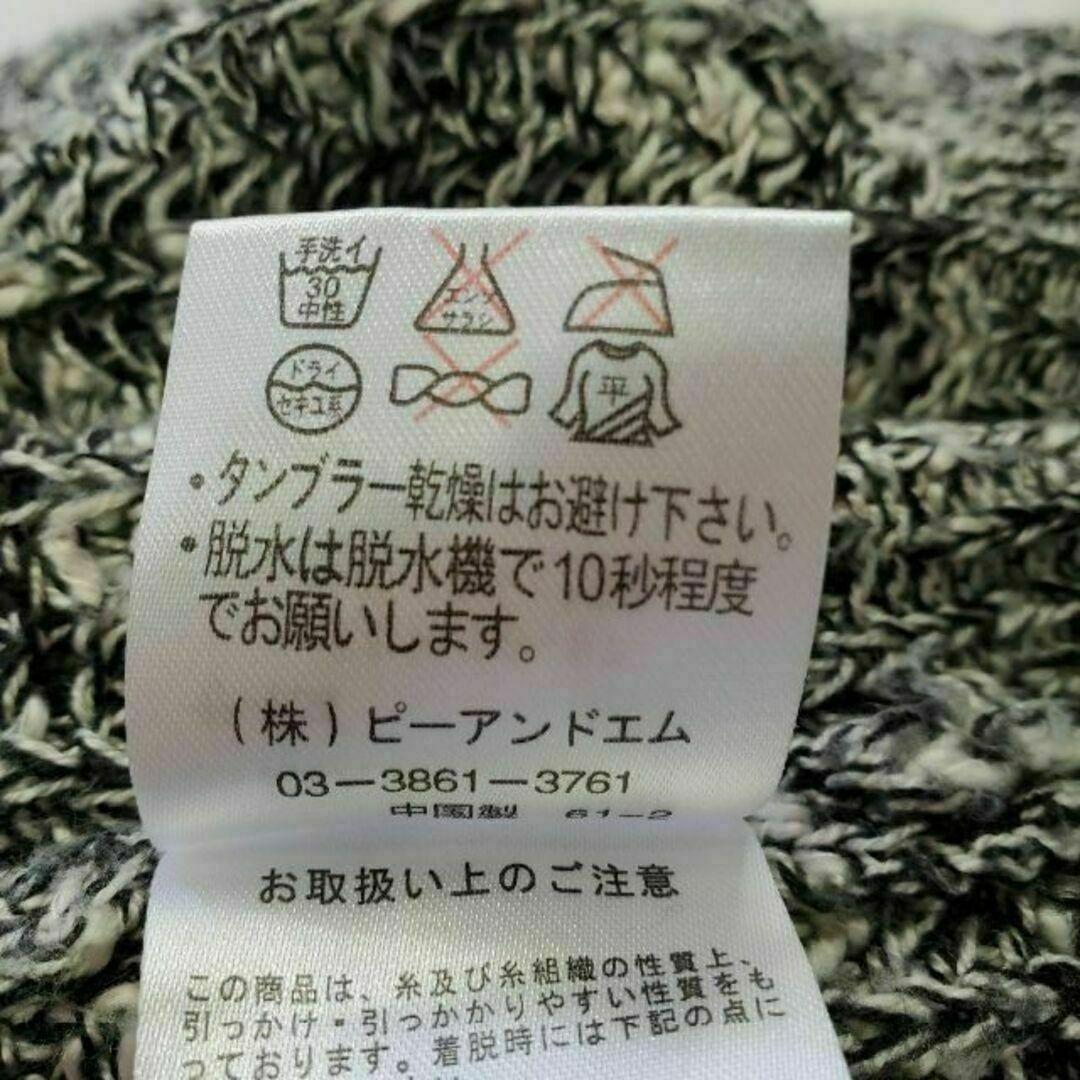 手洗イ
30
中性
エンソ
サラシ
ドライ
セキユ系
平
・タンブラー乾燥はお避け下さい。
・脱水は脱水機で10秒程度
でお願いします。
(株)ピーアンドエム
03-3861-3761
中国製 61-2
お取扱い上のご注意
この商品は、糸及び糸組織の性質上、
引っかけ・引っかかりやすい性質をも
っております。着脱時には下記の点に